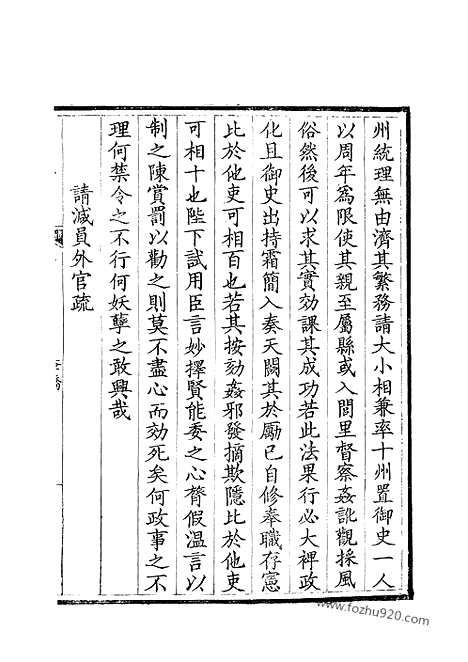 州統理無由濟其繁務請大小相兼率十州置御史一人
以周年爲限使其親至屬縣或入閭里督察姦訛觀採風
俗然後可以求其實効課其成功若此法果行必大裨政
化且御史出持霜簡入奏天闕其於厲已自修奉職存憲
比於他吏可相百也若其按劾姦邪發摘欺隱比於他吏
可相十也陛下試用臣言妙擇賢能委之心膂假溫言以
制之陳賞罰以勸之則莫不盡心而効死矣何政事之不
理何禁令之不行何妖孽之敢興哉
請減員外官疏
www.fozhu920.com